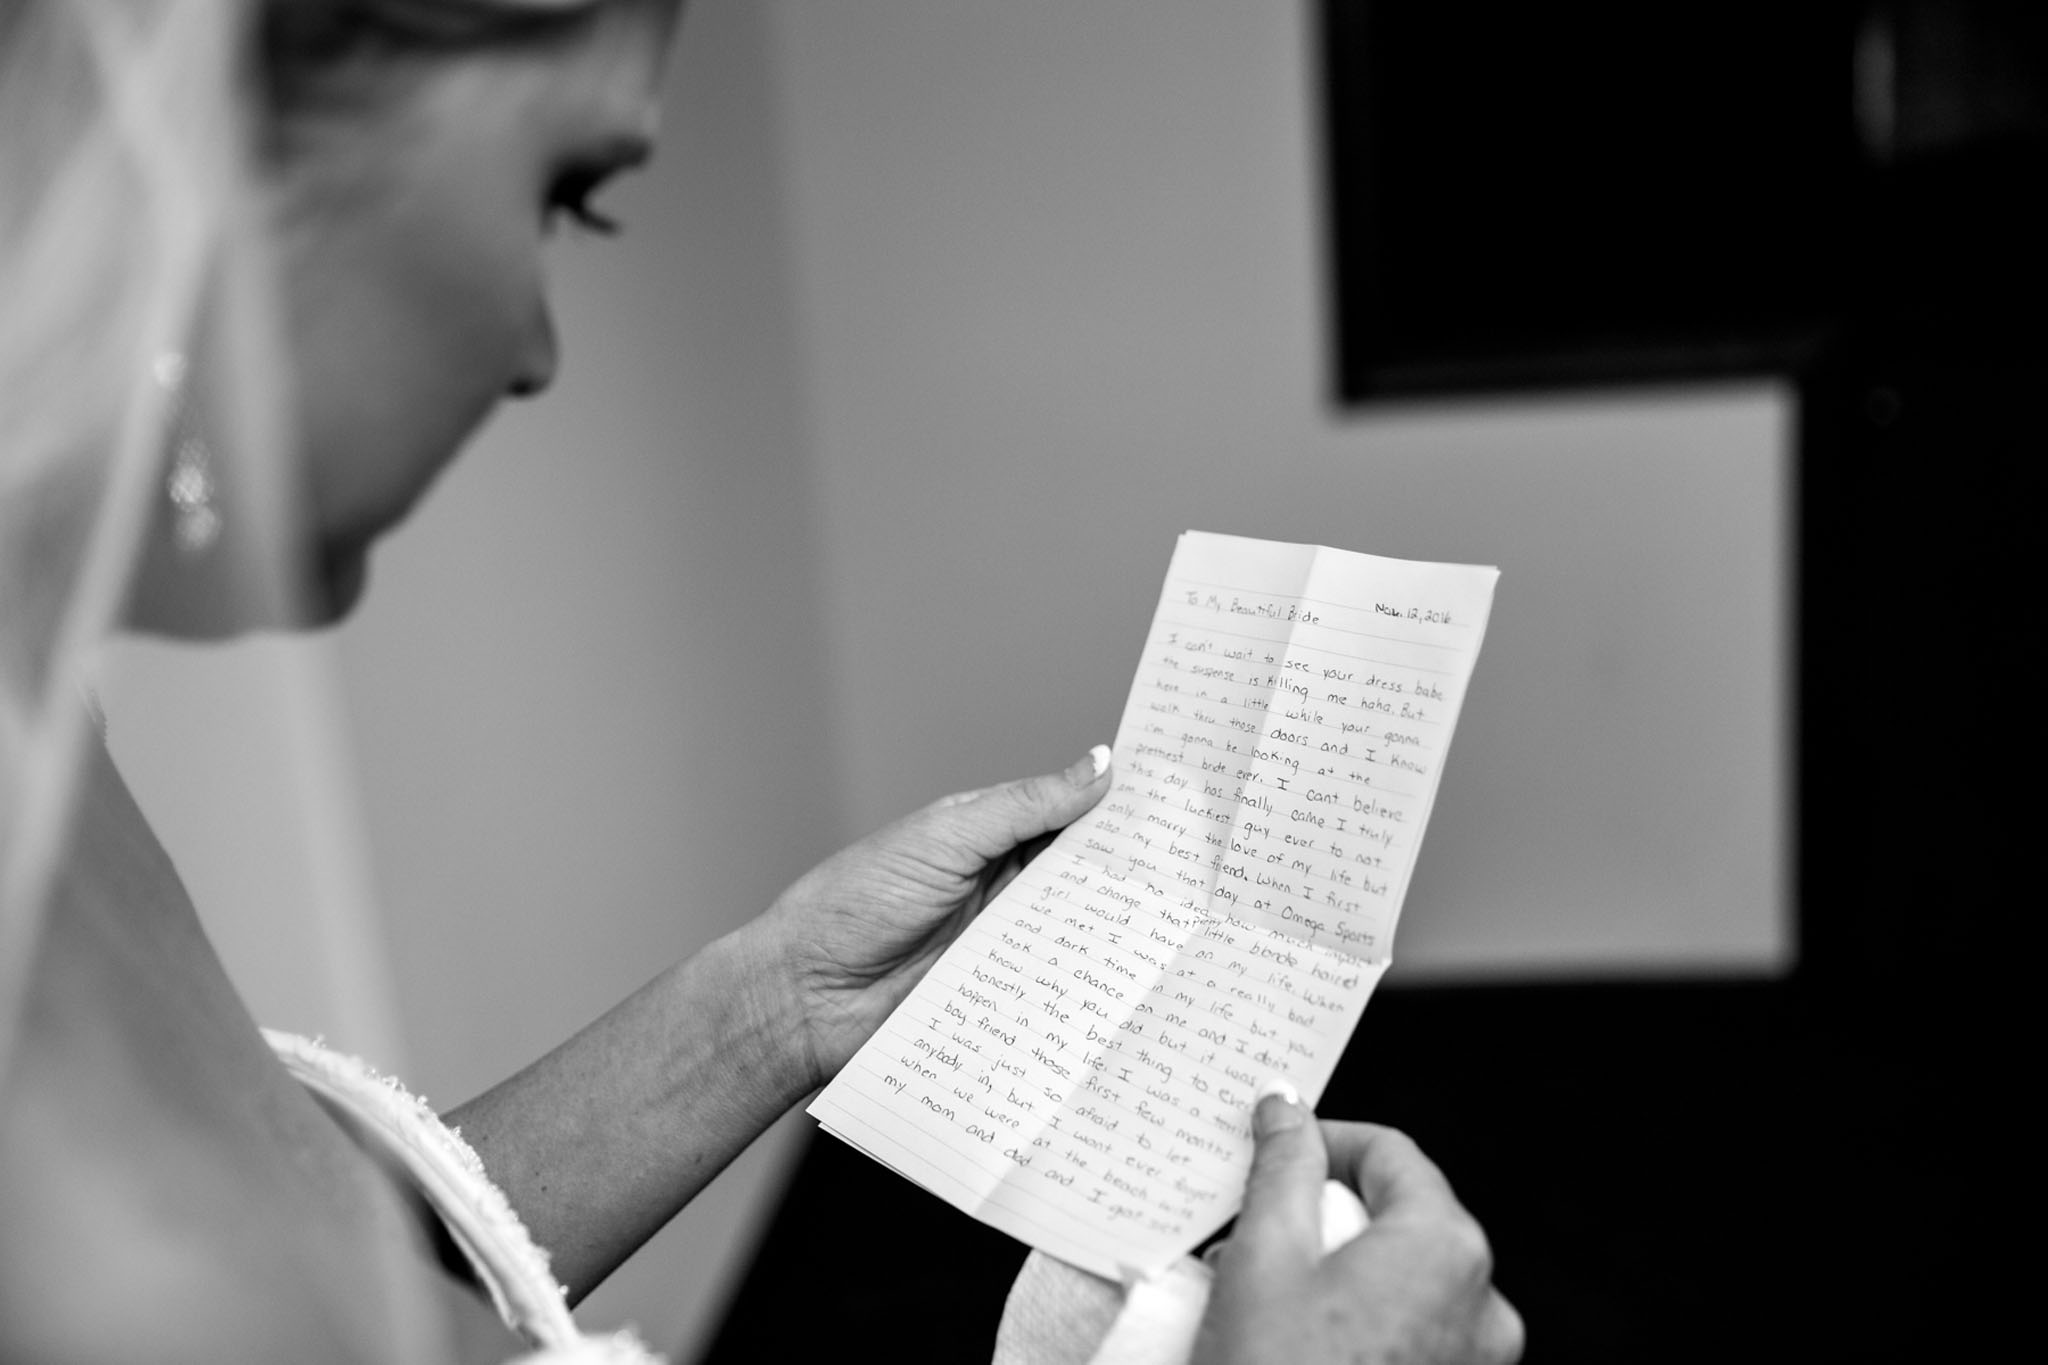 To My Beautiful Bride Nov. 12, 2016
I can't wait to see your dress babe
the suspense is killing me haha. But
here in a little while your gonna
walk thru those doors and I know
i'm gonna be looking at the
prettiest bride ever. I cant believe
this day has finally came I truly
am the luckiest guy ever to not
only marry the love of my life but
also my best friend. When I first
saw you that day at Omega Sports
I had no idea how much impact
and change that pretty little blonde haired
girl would have on my life. When
we met I was at a really bad
and dark time in my life but you
took a chance on me and I don't
know why you did but it was
honestly the best thing to ever
happen in my life. I was a
boy friend those first few months
I was just so afraid to let
anybody in, but I wont ever forget
when we were at the beach with
my mom and dad and I got sick